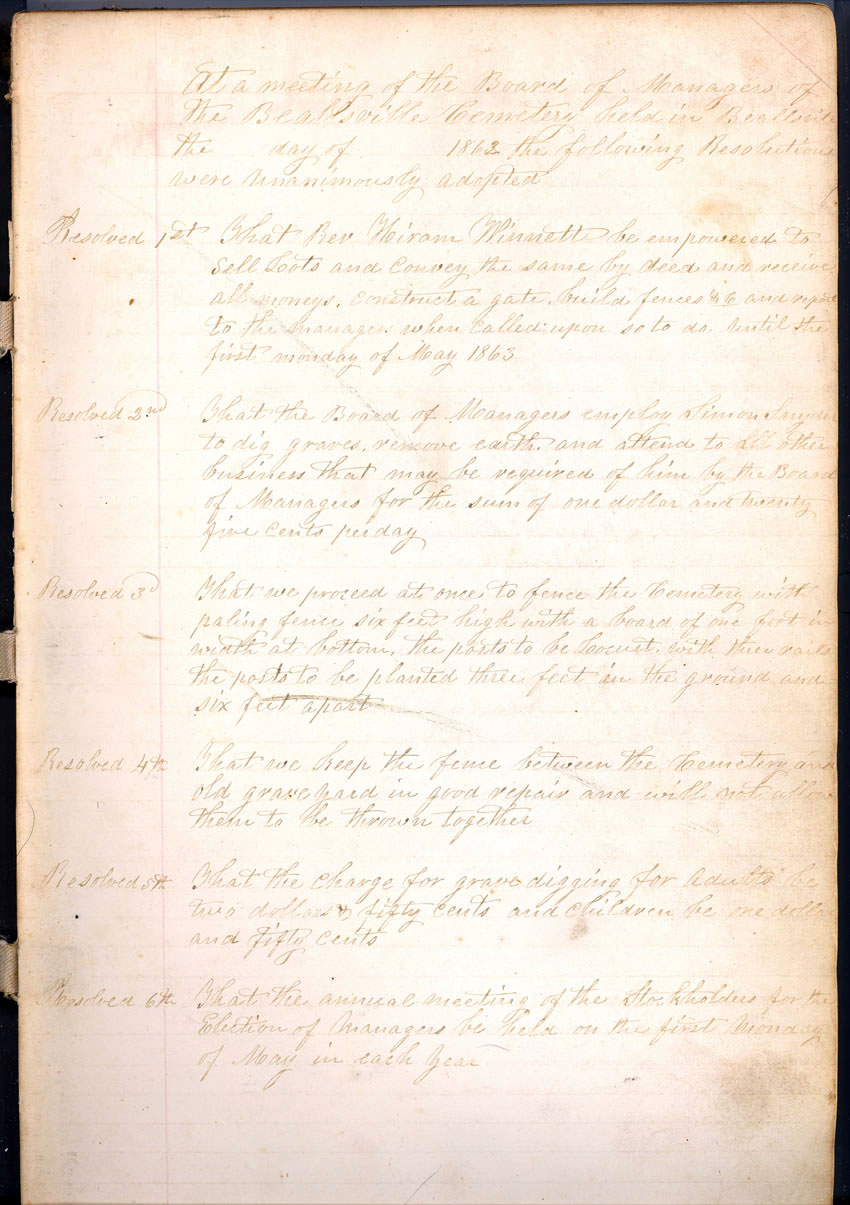 At a meeting of the Board of Managers of
the Beallsville Cemetery held in Beallsville
the day of 1862 the following Resolutions
were unanimously adopted
Resolved 1st That Rev Hiram Winnett be empowered to
Sell Lots and Convey the same by deed and receive
all moneys, construct a gate, build fences &c and report
to the managers when called upon so to do. until the
first monday of May 1863
Resolved 2nd That the Board of Managers employ Simon Snyder
to dig graves, remove earth, and attend to all other
business that may be required of him by the Board
of Managers for the sum of one dollar and twenty
five cents per day
Resolved 3d That we proceed at once to fence the Cemetery with
paling fence six feet high with a board of one foot in
width at bottom, the posts to be Locust, with three rails
the posts to be planted three feet in the ground and
six feet apart
Resolved 4th That we keep the fence between the Cemetery and
old grave yard in good repair and will not allow
them to be thrown together
Resolved 5th That the charge for grave digging for adults be
two dollars & fifty cents and children be one dollar
and fifty cents
Resolved 6th That the annual meeting of the Stockholders for the
Election of Managers be held on the first Monday
of May in each Year